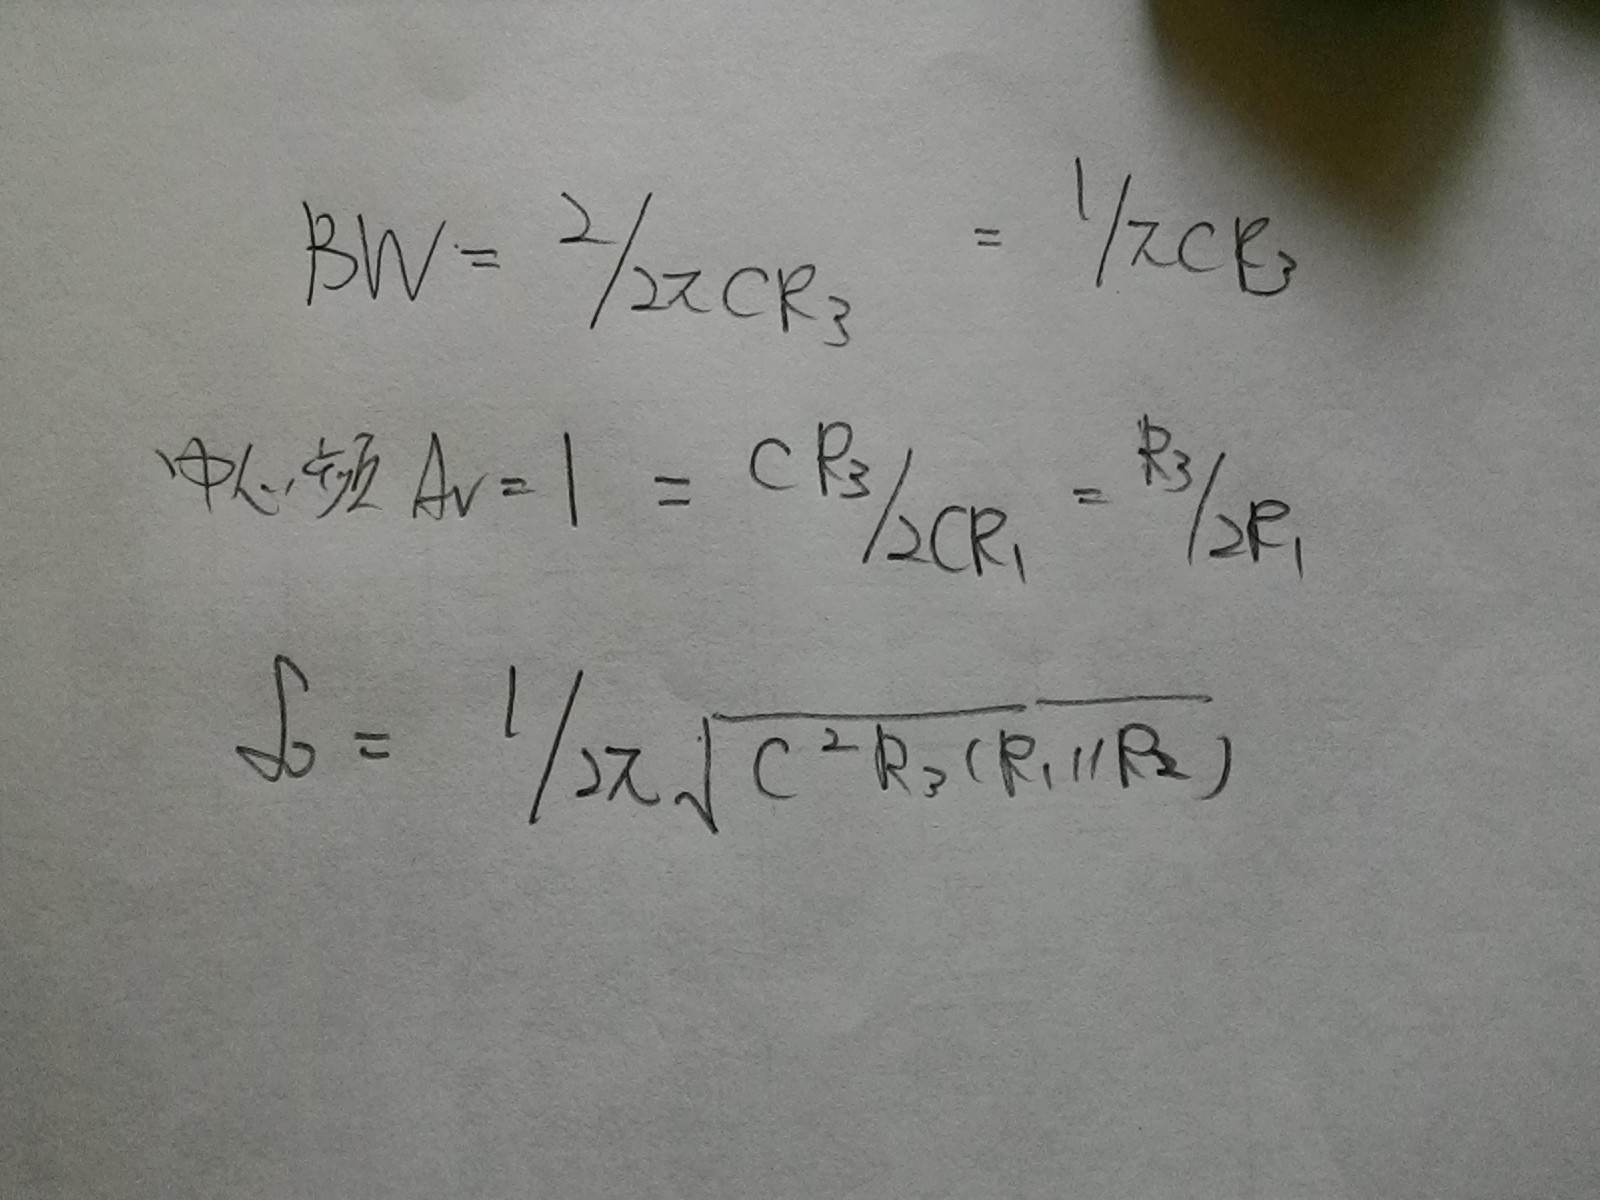 BW = 2/2πCR₃ = 1/πCR₃
中心频 Av = 1 = CR₃/2CR₁ = R₃/2R₁
f₀ = 1/2π√C²R₃(R₁//R₂)